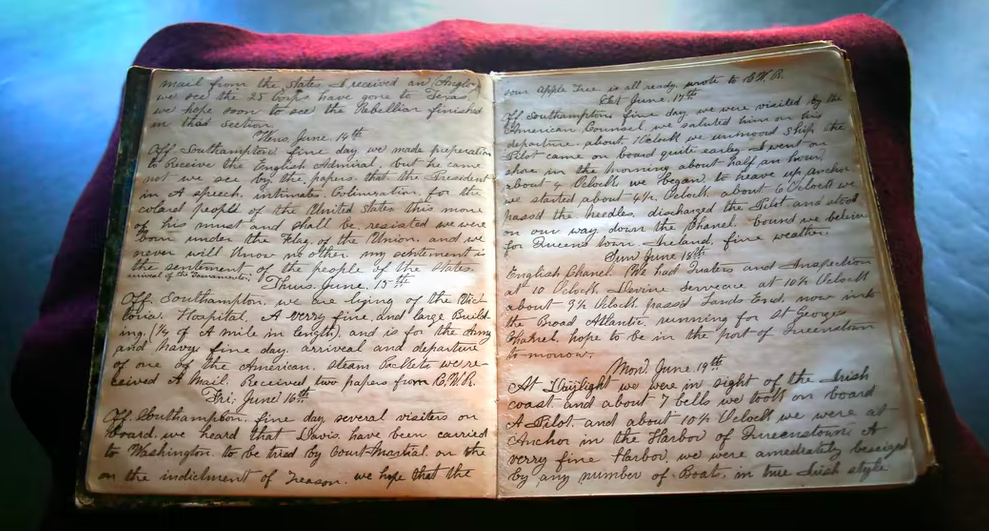 mail from the States I received an Anglo,
we see the 25 Corps have gone to Texas
we hope soon to see the Rebellian finished
in that section.
Wens, June, 14th
Off Southampton, fine day, we made preparation
to receive the English Admiral, but he came
not we see by the, papers, that the President
in A speech, intimates Colinization, for the
colard people of the United States this move
of his must and shall be, resisted we were
born under the Flag of the Union, and we
never will know no other, my sentement is
the sentement of the people of the States.
arrival of the Sacramento,
Thurs. June, 15th
Off, Southampton, we are lying of the Vict
toria. Hospital, A verry fine, and large Build
ing, (¼ of A mile in length), and is for the Army
and Navy, fine day, arrival and departure
of one of the American, steam Packets we re-
ceived A Mail, Received two papers from C.W.R.
Fri. June 16th
Off Southampton, fine day, several visiters on
Board, we heard that Davis, have been carried
to Washington, to be tried by Court-Martial on the
on the indictment of Treason, we hope that the
sour Apple Tree is all ready, wrote to C.W.R.
Sat June, 17th
Off Southampton, fine day, we were visited by the
American Counsel, we saluted him on his
departure, about 1 Oclock we unmoord Ship the
Pilot came on board quite early, I went on
shore in the morning about half an hour,
about 4 Oclock we began, to heave up anchor
we started about 4½ Oclock about 6 Oclock we
passd the needles, discharged the Pilot and stood
on our way down the Chanel. bound we believe
for Queens Town. Ireland, fine weather.
Sun June 18th
English Chanel. We had Quaters and Inspection
at 10 Oclock. Devine Serveace at 10½ Oclock
about 9½ Oclock passd Lands End, now into
the Broad Atlantic, running for St Georges
Chanel, hope to be in the Port of Queenstown
to morrow.
Mon, June 19th
At Daylight we were in sight of the Irish
coast, and about 7 bells we took on board
A Pilot, and about 10½ Oclock we were at
Anchor in the Harbor of Queenstown. A
verry fine Harbor, we were amediately beseiged
by any number of Boats, in true Irish style